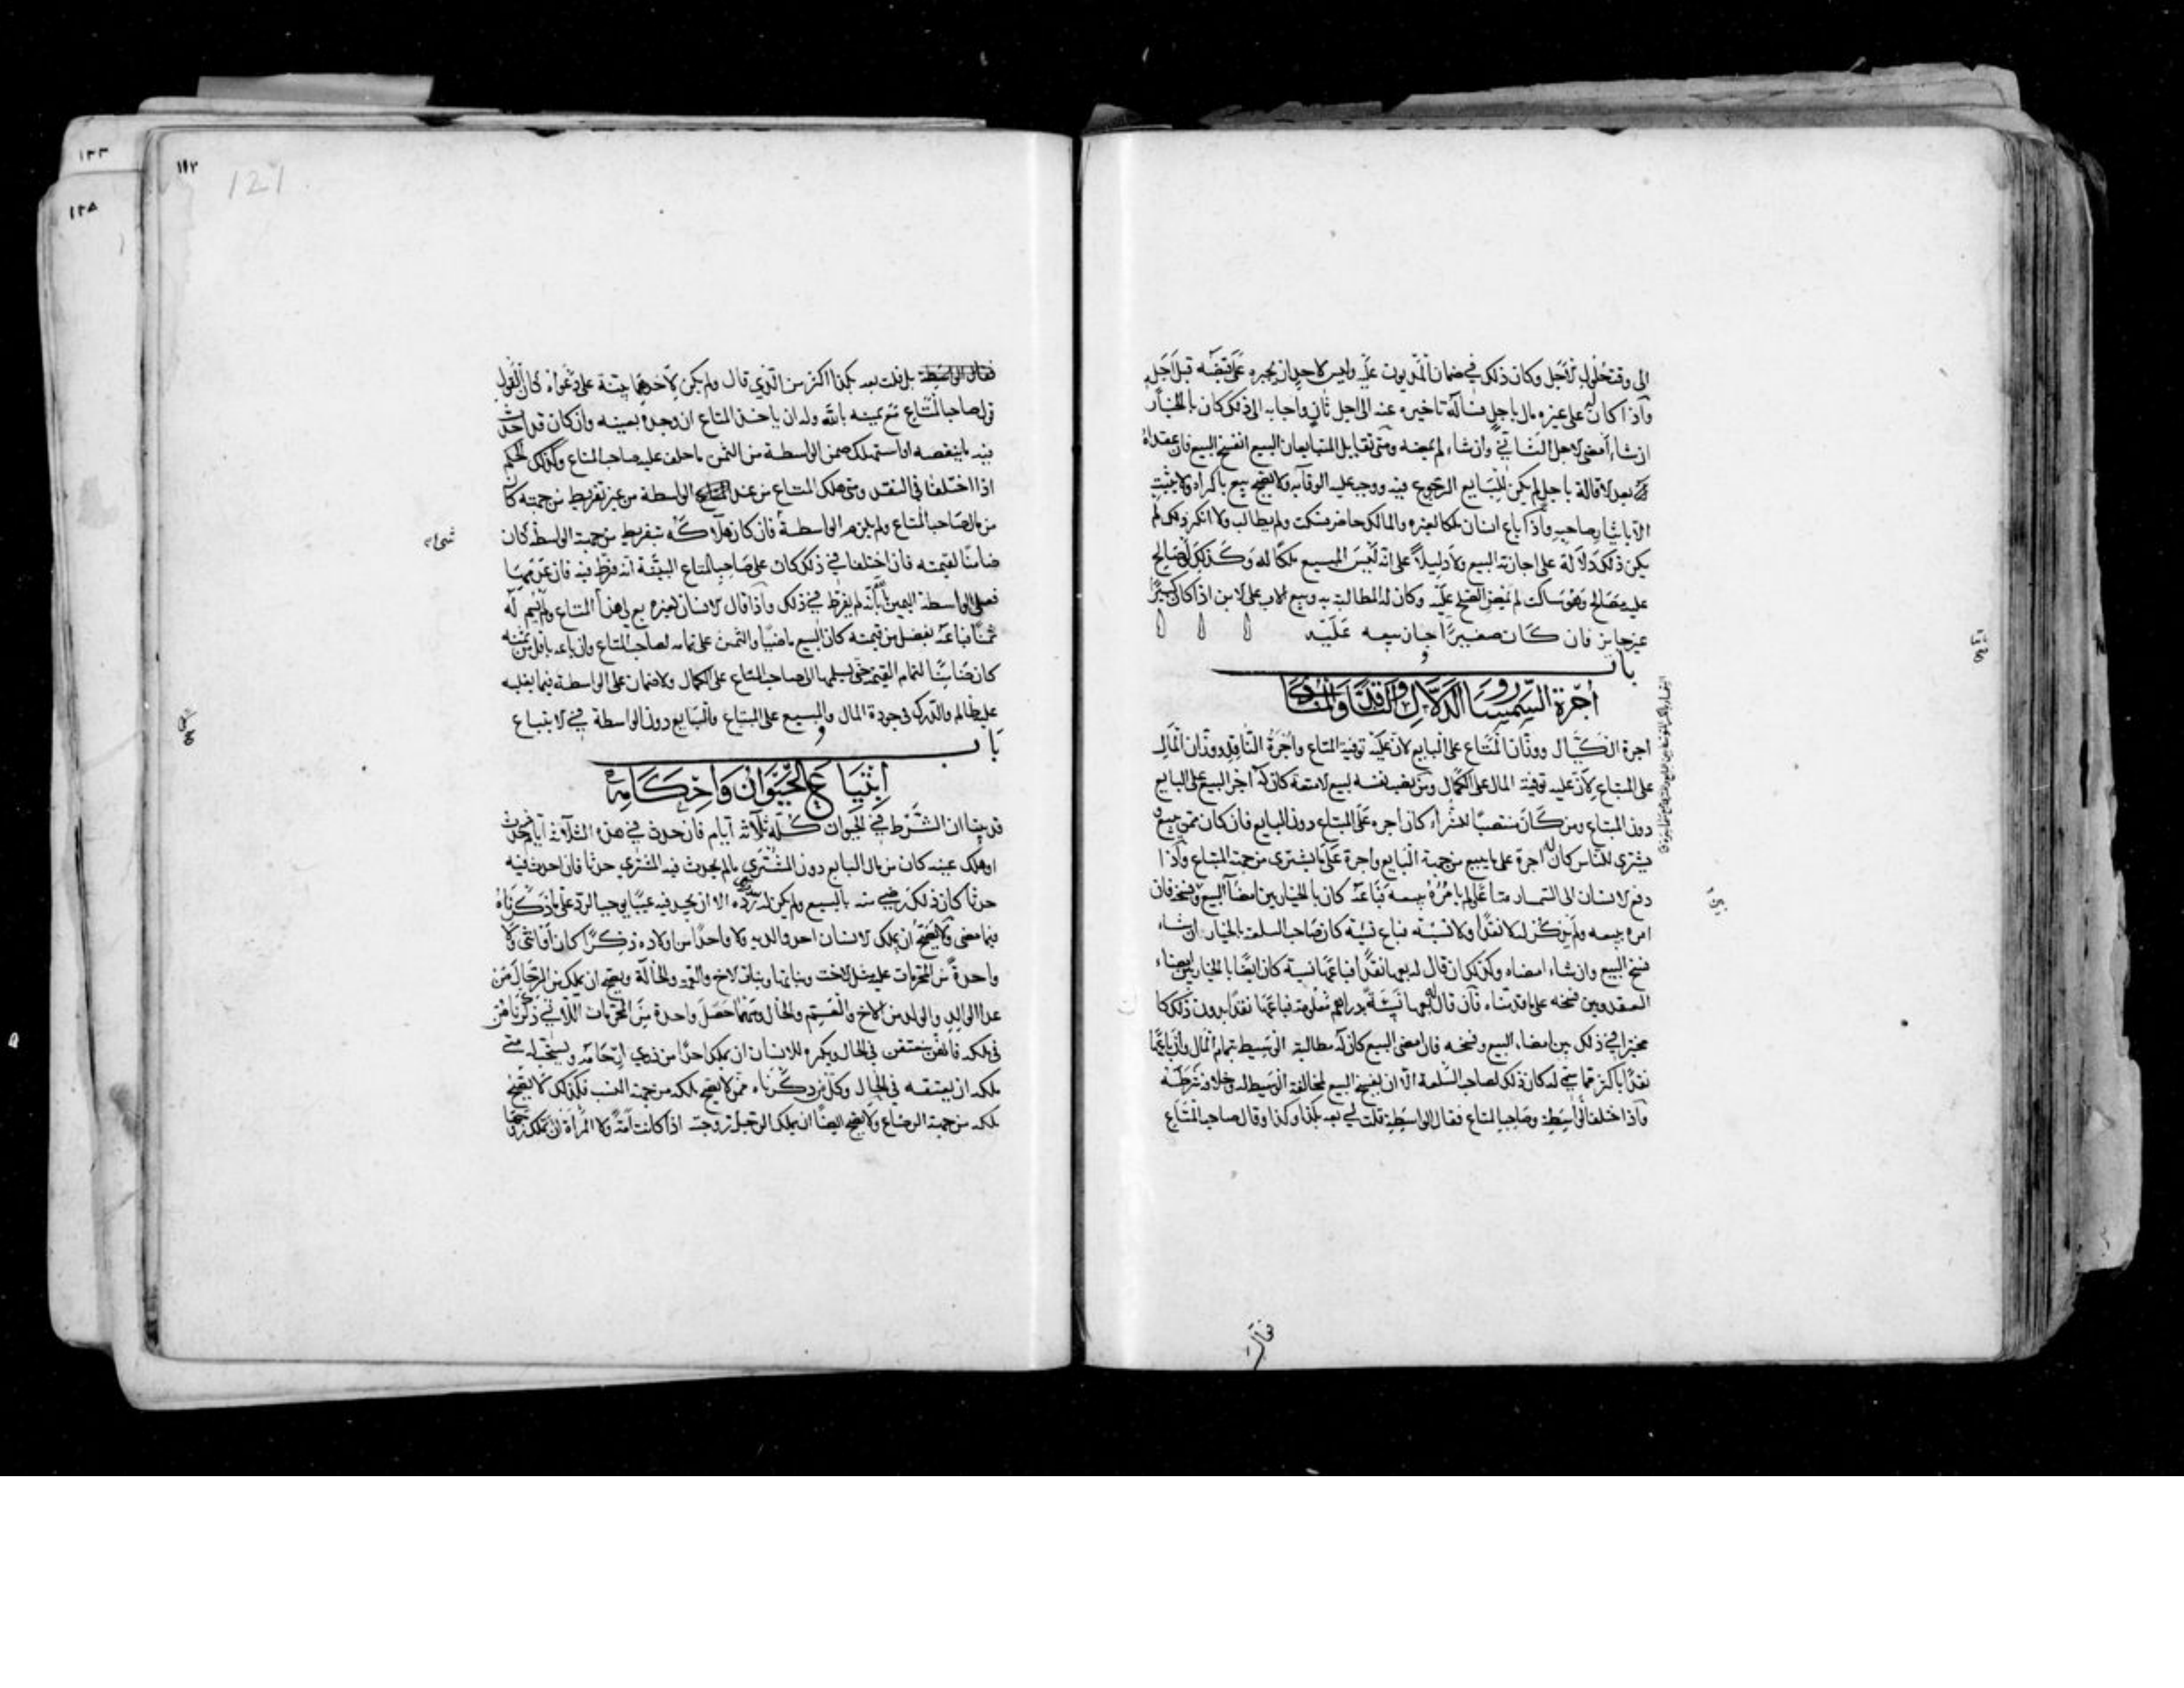 الى وقت حلوله لاجل وكان ذلك في ضمان المديون عليه وليس لاحد ان يجبره على قبضه قبل اجله
واذا كان له على غيره مال باجل فساله تاخيره عنه الى اجل ثان واجابه الى ذلك كان بالخيار
ان شاء امضى الاجل الثاني وان شاء لم يمضه ومتى تقايل المتبايعان البيع انفسخ البيع فان عقداه
بعد الاقالة باجل لم يكن للبايع الرجوع فيه ووجب عليه الوفآء به ولا يصح بيع باكراه ولا يثبت
الا بايثار صاحبه واذا باع انسان ملكا لغيره والمالك حاضر فسكت ولم يطالب ولا انكر ذلك لم
يكن ذلك دلالة على اجازته البيع ولا دليلا على انه ليس المبيع ملكا له وكذلك ان صالح
عليه مصالح وهو ساكت لم يمض الصلح عليه وكان له المطالبة به وبيع الاب على الابن اذا كان كبيرا
غير جايز فان كان صغيرا جاز بيعه عليه
باب
أجرة السمسار والدلال والناقد والمنادى
اجرة الكيال ووزان المتاع على البايع لان عليه توفية المتاع واجرة الناقد ووزان المال
على المبتاع لان عليه توفية المال على الكمال ومن نصب نفسه لبيع الامتعة كان له اجر البيع على البايع
دون المبتاع ومن كان منتصبا للشراء كان اجره على المبتاع دون البايع فان كان ممن يبيع و
يشترى للناس كان له اجرة على ما يبيع من جهة البايع واجرة على ما يشترى من جهة المبتاع واذا
دفع الانسان الى السمسار متاعا لم يامره ببيعه فباعه كان بالخيار بين امضآ البيع وفسخه فان
امره ببيعه ولم يذكر له لا نقدا ولا نسية فباع نسية كان صاحب السلعة بالخيار ان شاء
فسخ البيع وان شاء امضاه وكذلك ان قال له بعها نقدا فباعها نسية كان ايضا بالخيار بين امضاء
العقد وبين فسخه على ما قدمناه فان قال له بعها نسية بدراهم معلومة فباعها نقدا بدون ذلك كا
مخيرا في ذلك بين امضاء البيع وفسخه فان امضى البيع كان له مطالبة الوسيط بتمام المال وان باعها
نقدا باكثر مما سمى له كان ذلك لصاحب السلعة الا ان يفسخ البيع لمخالفة الوسيط له وخلافه شرطه
واذا اختلف الواسطة وصاحب المتاع فقال الواسطة قلت لي بعه بكذا وكذا وقال صاحب المتاع
فقال
١١٢
121
١٢٣
١٢٨
فقال الواسطة بل قلت بعه بكذا اكثر من الذي قال ولم يكن لاحدهما بينة على دعواه كان القول
قول صاحب المتاع مع يمينه بالله وله ان ياخذ المتاع ان وجده بعينه وان كان قد احدث
فيه ما ينقصه او استهلك ضمن الواسطة من الثمن ما حلف عليه صاحب المتاع وكذلك الحكم
اذا اختلفا في النقد ومتى هلك المتاع من عند الواسطة من غير تفريط من جهته كان
من مال صاحب المتاع ولم يلزم الواسطة فان كان هلاكه بتفريط من جهة الواسطة كان
ضامنا لقيمته فان اختلفا في ذلك كان على صاحب المتاع البينة انه فرط فيه فان عدمها
فعلى الواسطة اليمين بأنه لم يفرط في ذلك واذا قال الانسان لغيره بع لي هذا المتاع ولم يسم له
ثمنا فباعه بفضل من قيمته كان البيع ماضيا والثمن على تمامه لصاحب المتاع وان باعه باقل من ثمنه
كان ضامنا لتمام القيمة حتى يسلمها الى صاحب المتاع على الكمال ولا ضمان على الواسطة فيما يغلبه
عليه ظالم والدرك في جودة المال والمبيع على المبتاع والبايع دون الواسطة في الابتياع
باب
ابتياع الحيوان واحكامه
قد بينا ان الشرط في الحيوان كله ثلاثة ايام فان حدث في هذه الثلاثة ايام حدث
او هلك عينه كان من مال البايع دون المشتري ما لم يحدث فيه المشتري حدثا فان احدث فيه
حدثا كان ذلك رضي منه بالمبيع ولم يكن له رده الا ان يجد فيه عيبا يوجب الرد على ما ذكرناه
فيما مضى ولا يصح ان يملك الانسان احد والديه ولا واحدا من اولاده ذكرا كان او انثى ولا
واحدة من المحرمات عليه مثل الاخت وبناتها وبنات الاخ والعمة والخالة ويصح ان يملك من الرجال من
عدا الوالد والولد من الاخ والعم والخال ومتى حصل واحدة من المحرمات اللاتي ذكرناهن
في ملكه فانهن ينعتقن في الحال ويكره للانسان ان يملك احدا من ذوي ارحامه ويستحب له متى
ملكه ان يعتقه في الحال وكل من ذكرناه ممن لا يصح ملكه من جهة النسب فكذلك لا يصح
ملكه من جهة الرضاع ولا يصح ايضا ان يملك الرجل زوجته اذا كانت امة ولا المراة ان تملك زوجها